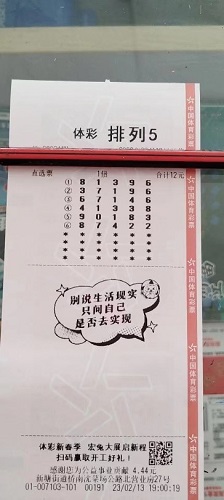 体彩 排列5
直选票 1倍 合计12元
① 8 1 3 9 6
② 3 7 1 9 6
③ 6 7 1 4 6
④ 4 1 3 3 8
⑤ 9 0 1 8 3
⑥ 8 7 4 2 2
* * * * *
* * * * *
* * * * *
* * * * *
别说生活现实
只问自己
是否去实现
体彩新春季 宏兔大展启新程
扫码赢取开工好礼!
感谢您为公益事业贡献 4.44元
新塘街道桥南沈菜场公路北营业房27号
01-007103-101 00191 23/02/13 19:00:19
中国体育彩票
中国体育彩票
中国体育彩票
中国体育彩票
中国体育彩票